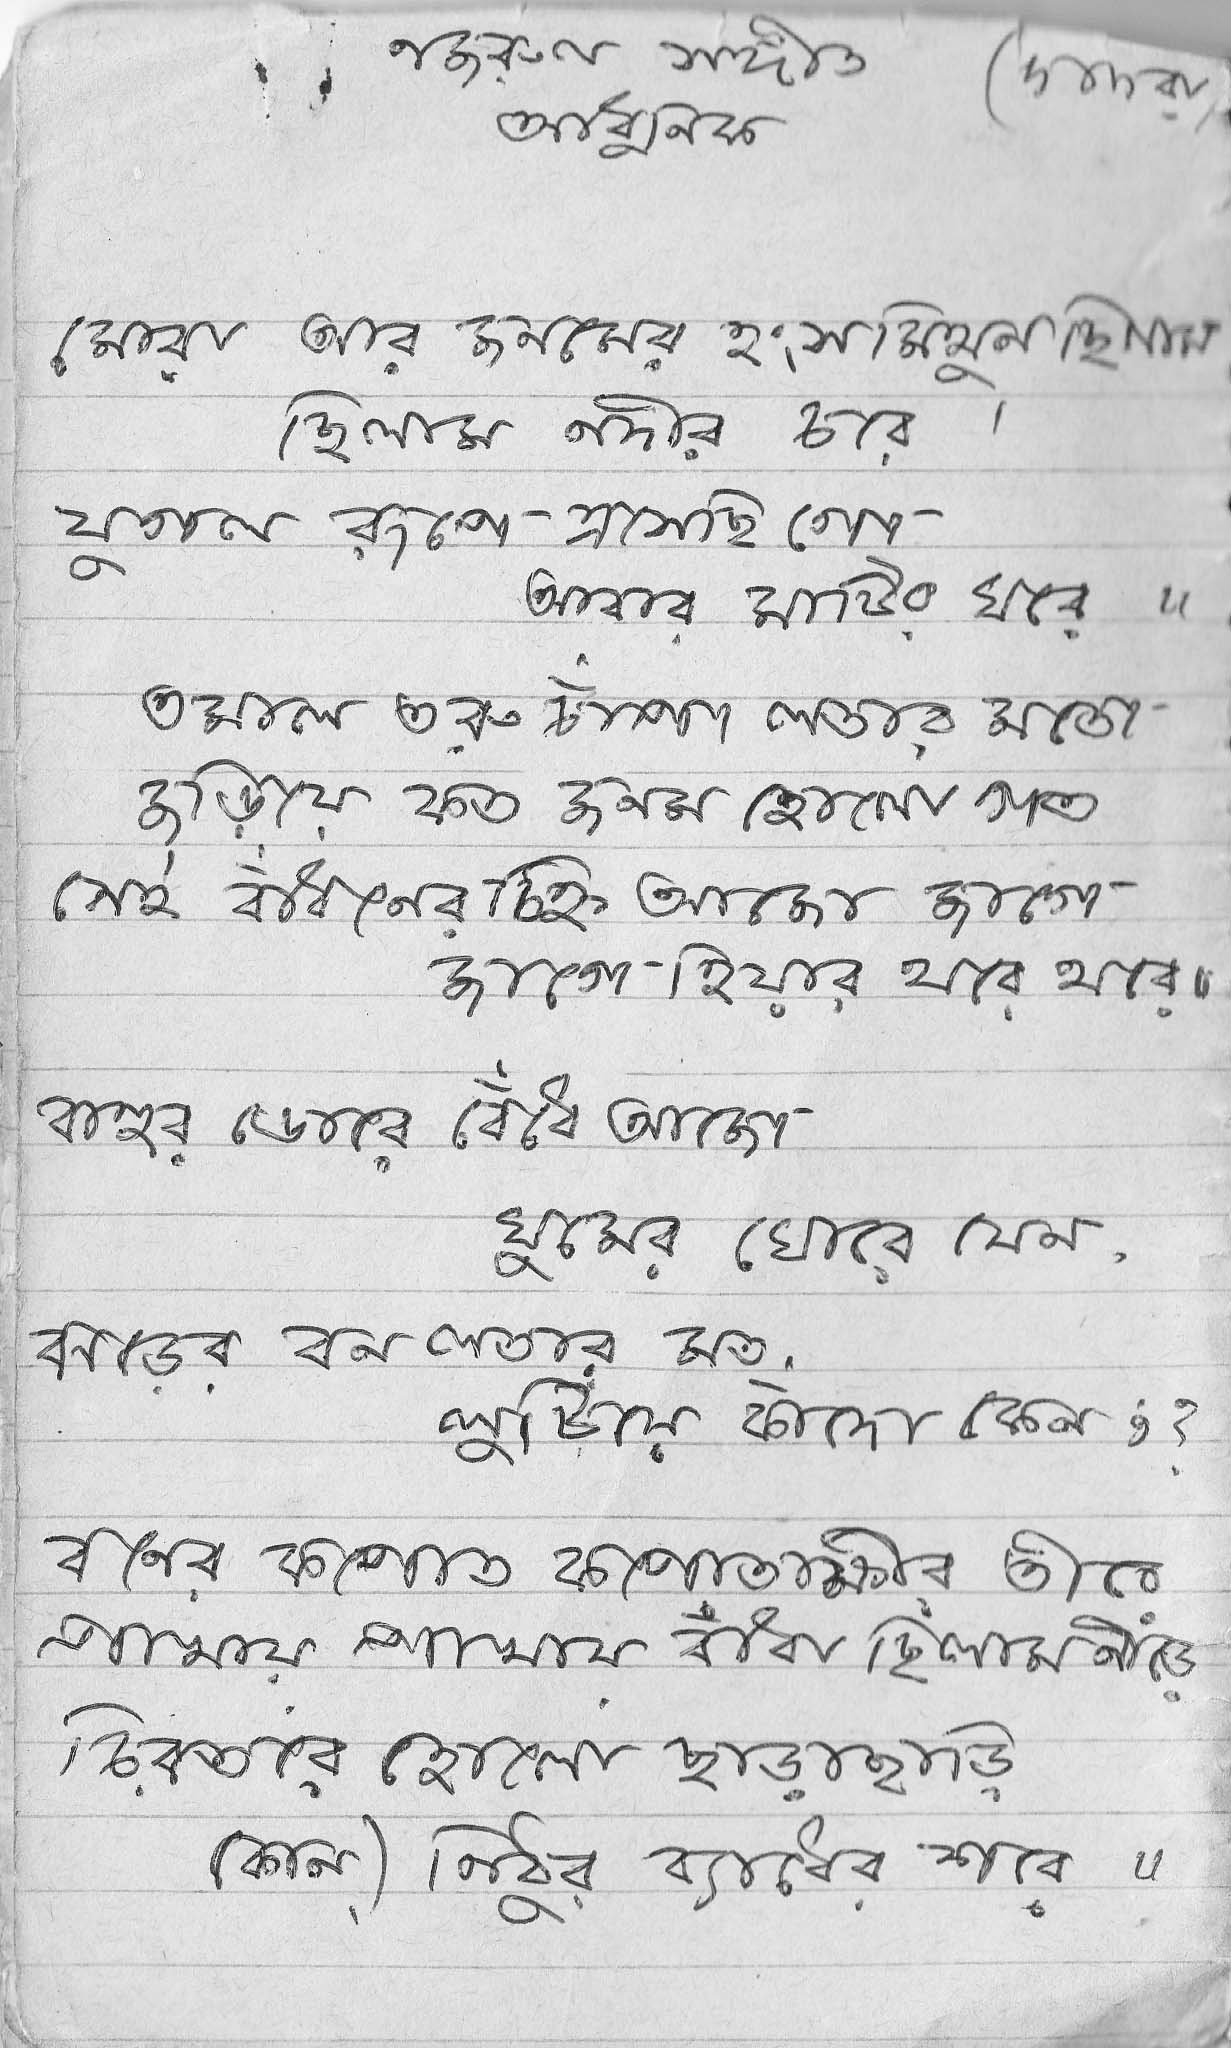 নজরুল সঙ্গীত (দাদরা)
আধুনিক
মোরা আর জনমের হংস মিথুন ছিলাম
ছিলাম নদীর চরে ।
যুগল রূপে এসেছি গো
আবার মাটির ঘরে ॥
তমাল তরু চাঁপা লতার মতো
জড়িয়ে কত জনম হোলো গত
সেই বাঁধনের চিহ্ন আজো জাগে
জাগে হিয়ার থরে থরে॥
বাহুর ডোরে বেঁধে আজো
ঘুমের ঘোরে যেন,
ঝড়ের বন লতার মত,
লুটিয়ে কাঁদো কেন ?
বনের কপোত কপোতাক্ষীর তীরে
পাখায় পাখায় বাঁধা ছিলাম নীড়ে
চিরতরে হোলো ছাড়াছাড়ি
(কোন্) নিঠুর ব্যাধের শরে ॥